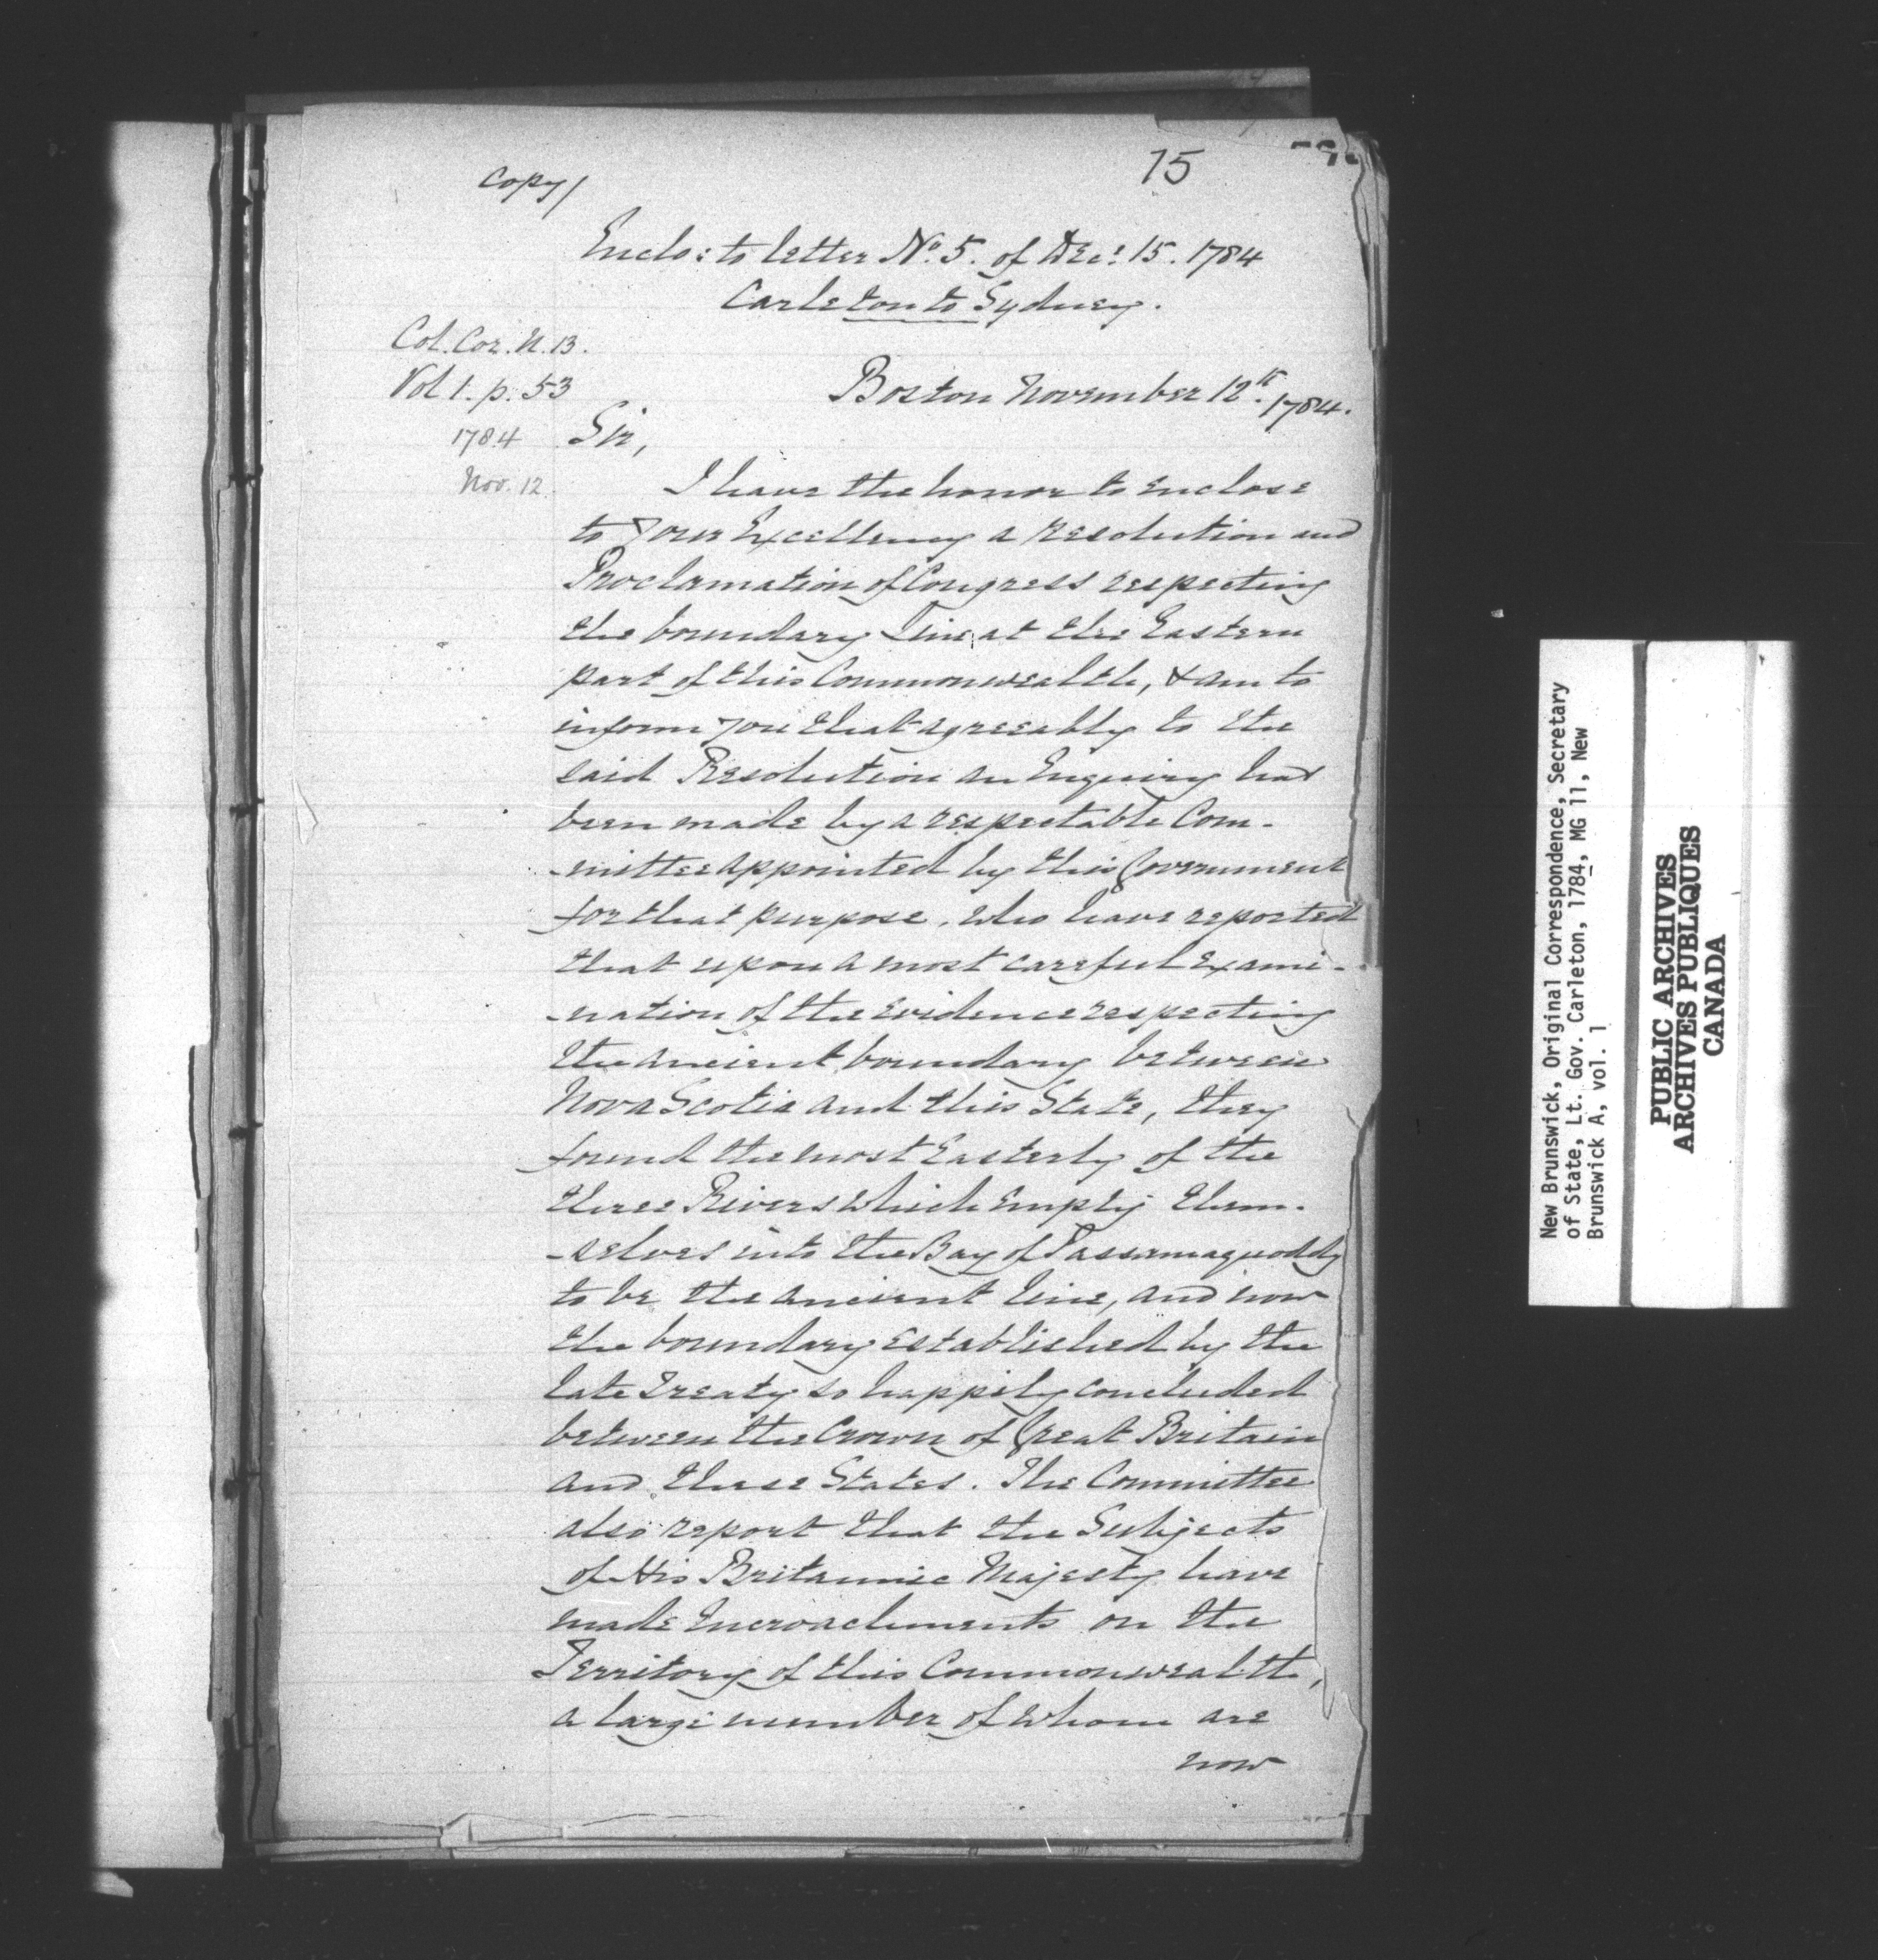 copy/
75
Enclo: to letter No. 5. of Dec: 15. 1784
Carleton to Sydney.
Col. Cor. N. B.
Vol 1. p. 53
1784
Nov. 12.
Boston November 12th. 1784.
Sir,
I have the honor to enclose
to Your Excellency a Resolution and
Proclamation of Congress respecting
the boundary Line, at the Eastern
part of this Commonwealth, & am to
inform you that agreeably to the
said Resolution an Enquiry has
been made by a respectable Com-
-mittee appointed by this Government
for that purpose, who have reported
that upon a most careful Exami-
-nation of the evidence respecting
the ancient boundary between
Nova Scotia and this State, they
found the most Easterly of the
three Rivers which empty them-
-selves into the Bay of Passamaquoddy
to be the ancient line, and now
the boundary established by the
late treaty so happily concluded
between the Crown of Great Britain
and these States. The Committee
also report that the Subjects
of His Britannic Majesty have
made Encroachments on the
Territory of this Commonwealth,
a large number of whom are
now
New Brunswick, Original Correspondence, Secretary
of State, Lt. Gov. Carleton, 1784, MG 11, New
Brunswick A, vol. 1
PUBLIC ARCHIVES
ARCHIVES PUBLIQUES
CANADA